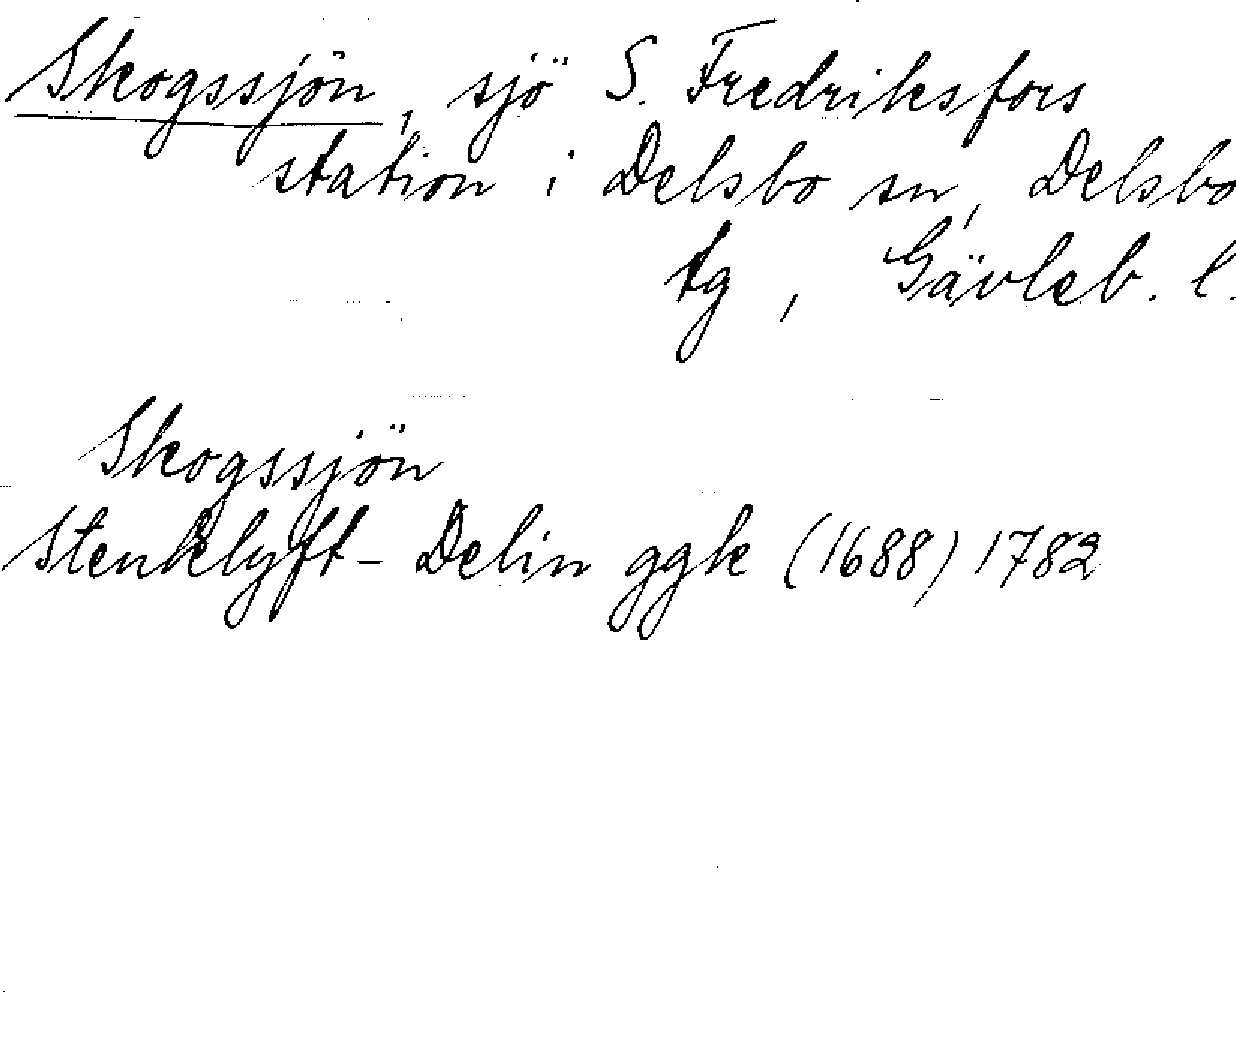 Skogssjön, sjö S. Fredriksfors
station i Delsbo sn, Delsbo
tg, Gävleb. l.
Skogssjön
Stenklyft-Delin ggk (1688) 1782